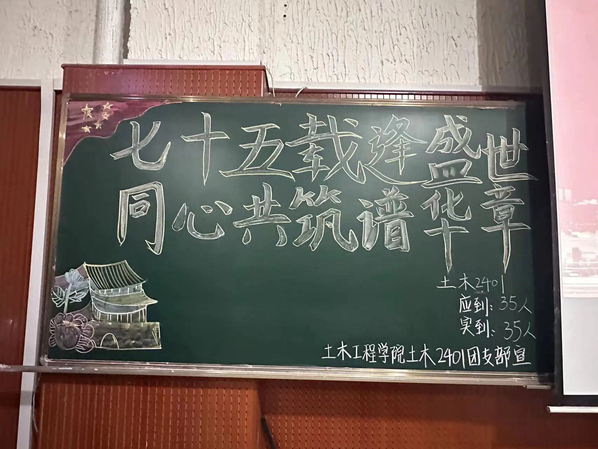 七十五载逢盛世
同心共筑谱华章
土木2401
应到：35人
实到：35人
土木工程学院土木2401团支部宣